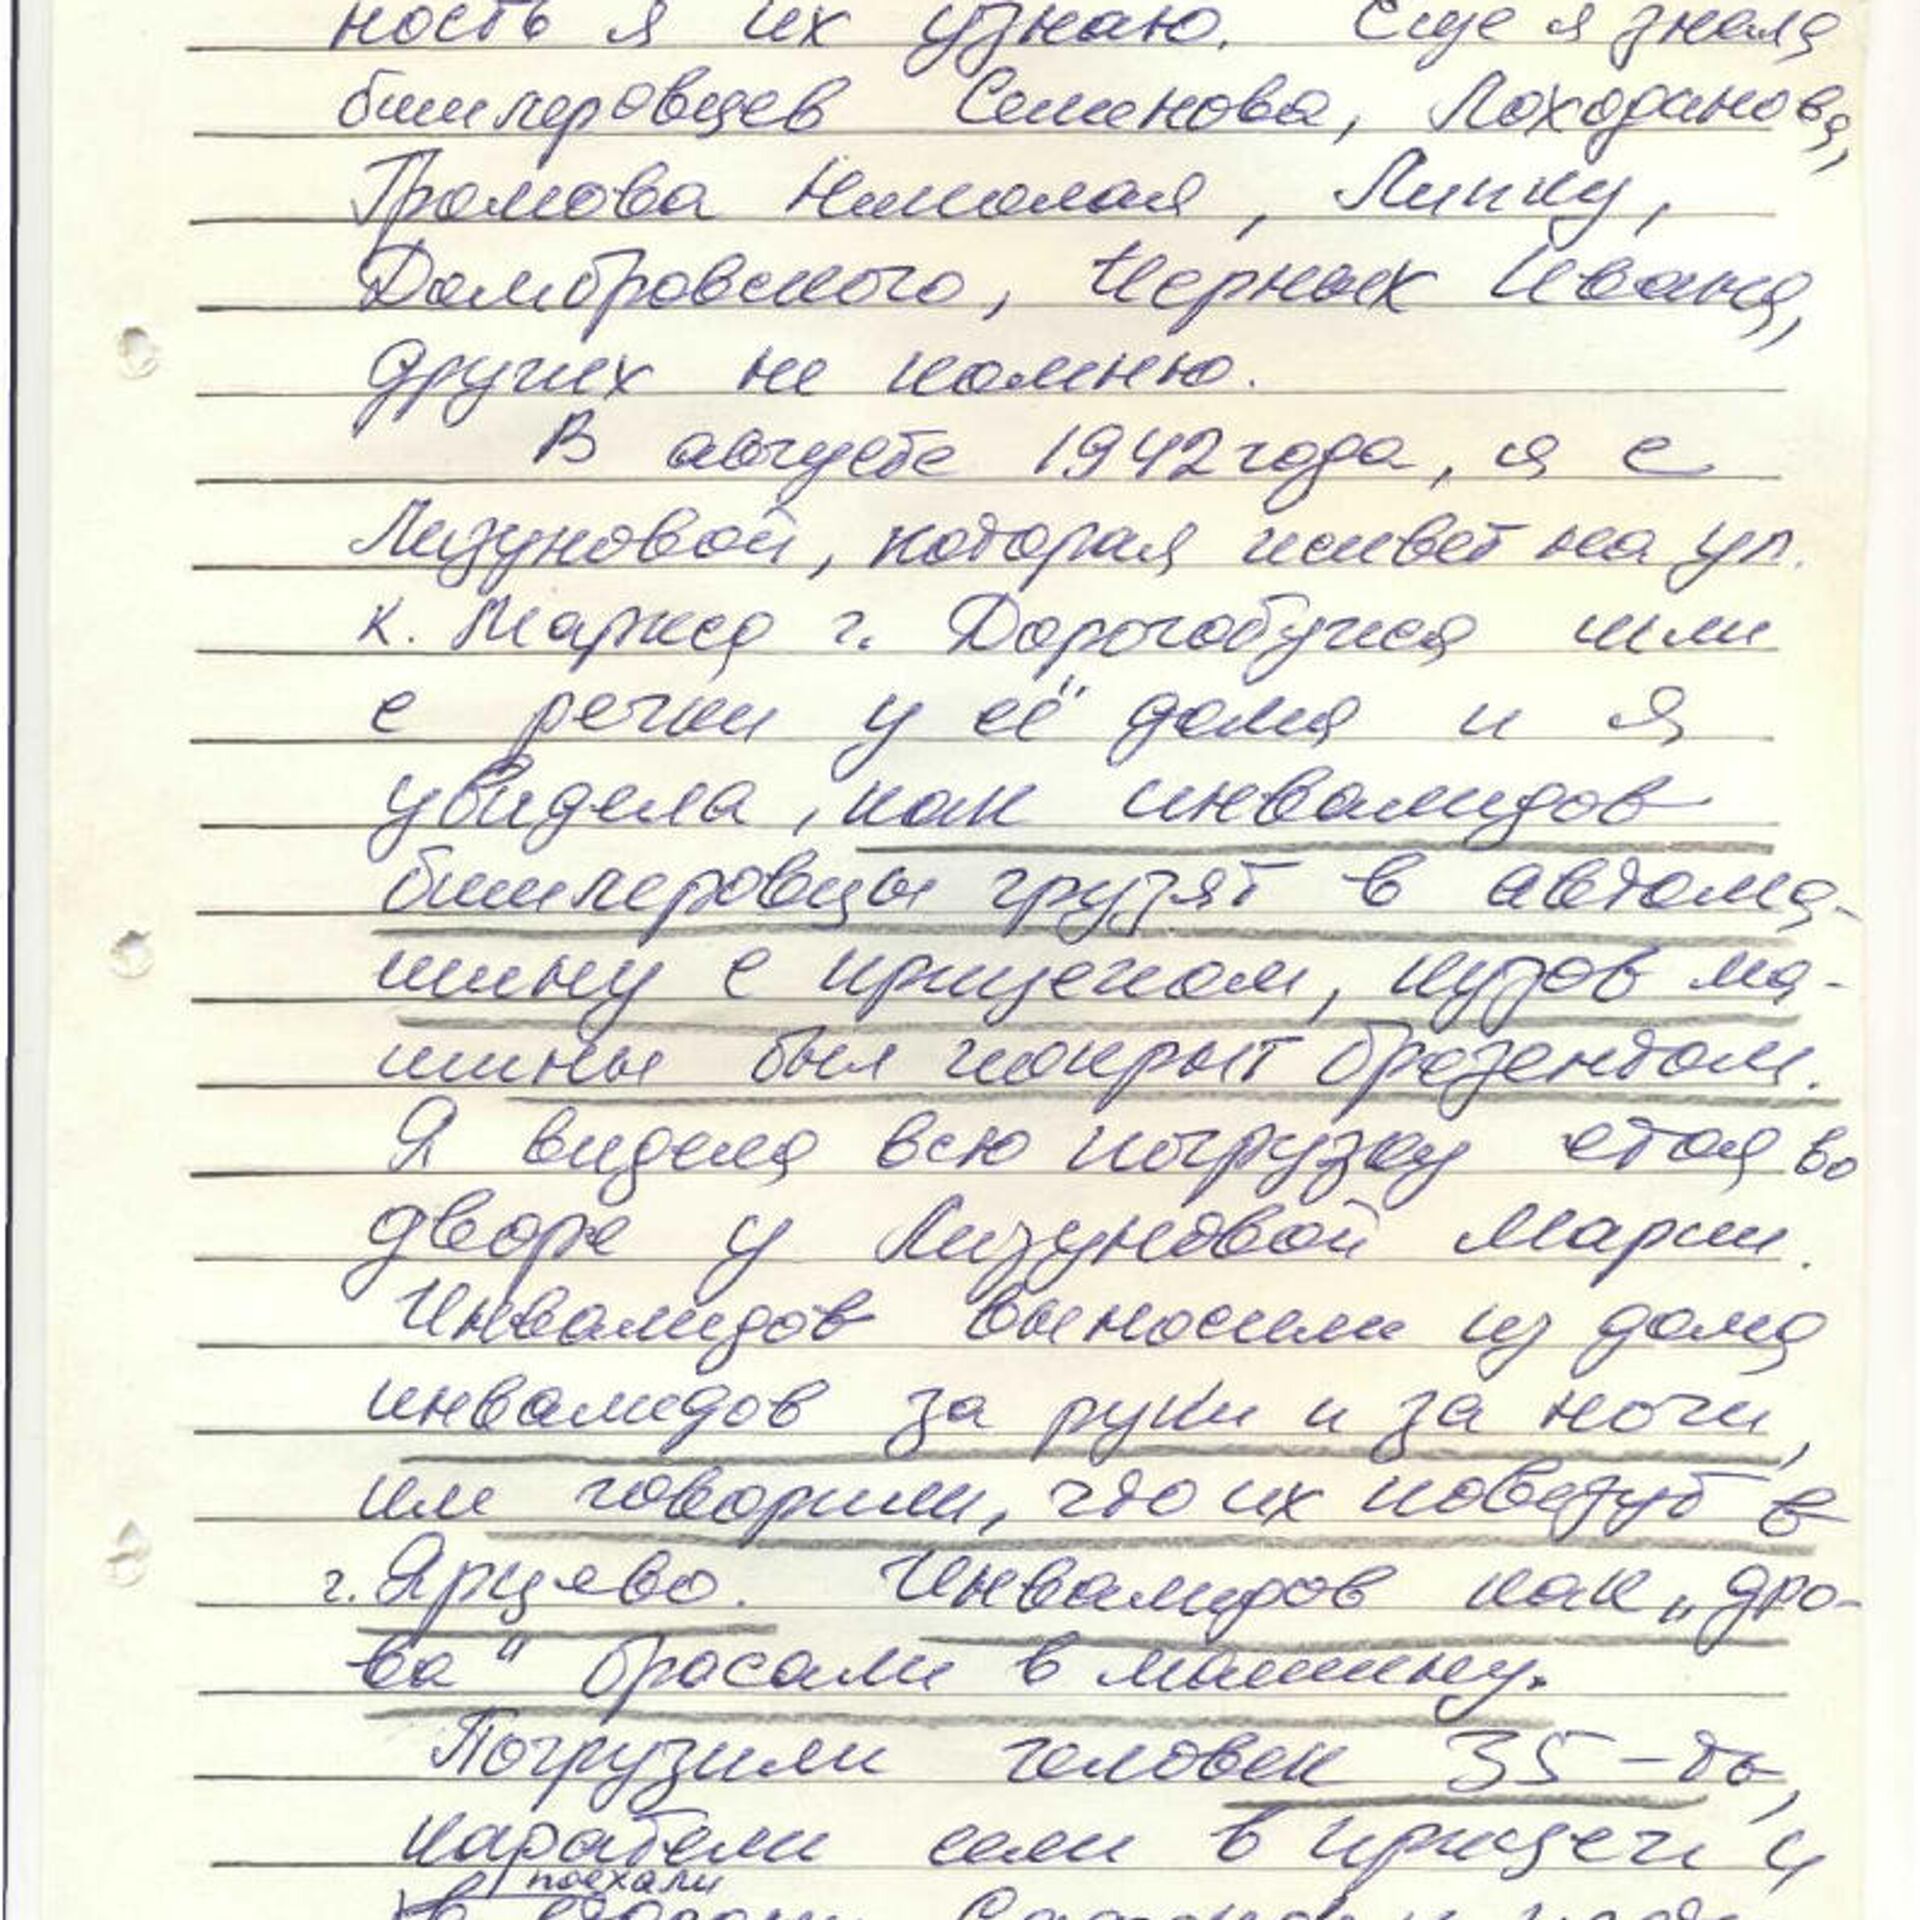 ность я их узнаю. Еще я знала
бишлеровцев Семенова, Лоходанова,
Громова Николая, Липку,
Домбровского, Черных Ивана,
других не помню.
В августе 1942 года, я с
Лизуновой, которая живет на ул.
К. Маркса г. Дорогобужа шли
с речки у её дома и я
увидела, как инвалидов
бишлеровцы грузят в автома-
шину с прицепом, кузов ма-
шины был покрыт брезентом.
Я видела всю погрузку стоя во
дворе у Лизуновой Марии.
Инвалидов выносили из дома
инвалидов за руки и за ноги,
им говорили, что их повезут в
г. Ярцево. Инвалидов как „дро-
ва" бросали в машину.
Погрузили человек 35-ть,
каратели сели в прицеп и
поехали
в сторону